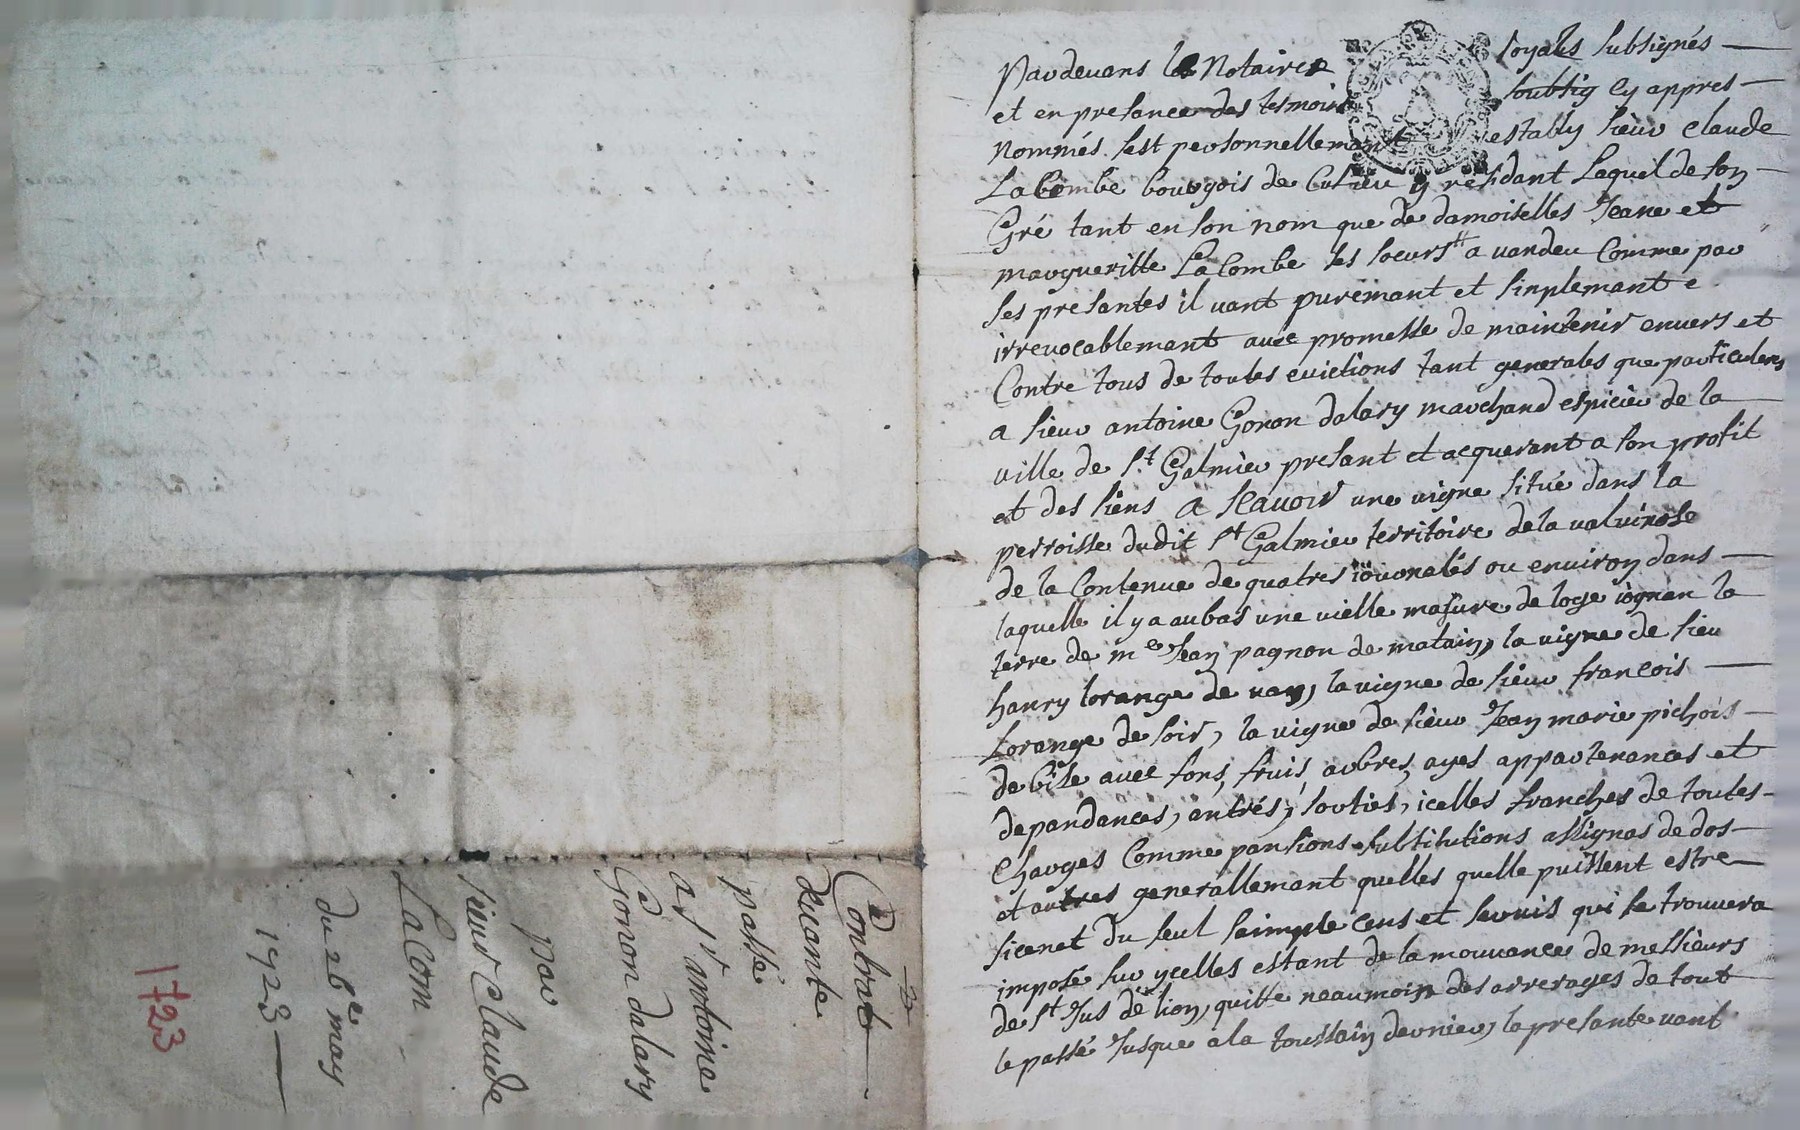 Pardevans le Notaires royals subsignés
et en presance des tesmoins soubsig cy appres
Nommés sest personnellemant estably sieur Claude
La Combe bourgois de Cusieu y residant Laquel de son
Gré tant en son nom que de damoiselles Jeane et
margueritte La Combe ses soeurs a vandeu Comme par
ses presantes il vant puremant et sinplemant e
irrevocablemant avec promesse de maintenir envers et
Contre tous de toutes evictions tant generales que particulieres
a sieur antoine Gonon dalary marchand espicier de la
ville de st Galmier presant et acquerant a son profit
et des siens a scavoir une vigne situé dans la
perroisse dudit st Galmier territoire de la valvinose
de la Contenue de quatres iournalés ou environ dans
laquelle il y a aubas une vielle masure de loge iognan la
terre de me Jean pagnon de matain, la vigne de sieu
hanry lorange de van, la vigne de sieur francois
Lorange de soir, la vigne de sieur Jean marie pichois
de bise avec fons, fruis, arbres, ayes appartenances et
depandances, antrés, sorties, icelles franches de toutes
Charges Comme pansions substitutions assignas de dos
et autres generallemant quelles quelle puissent estre
sicenet du seul saimple cens et servis qui se trouvera
imposé sur ycelles estant de la mouvance de messieurs
de st Jus de lion, quitte neaumoin des arrerages de tout
le passé Jusque a la toussain dernier, la presante vant
Contrat
de vante
passé
a sr antoine
Gonon dalary
par
sieur Claude
La Com
du 26e may
1923
1723